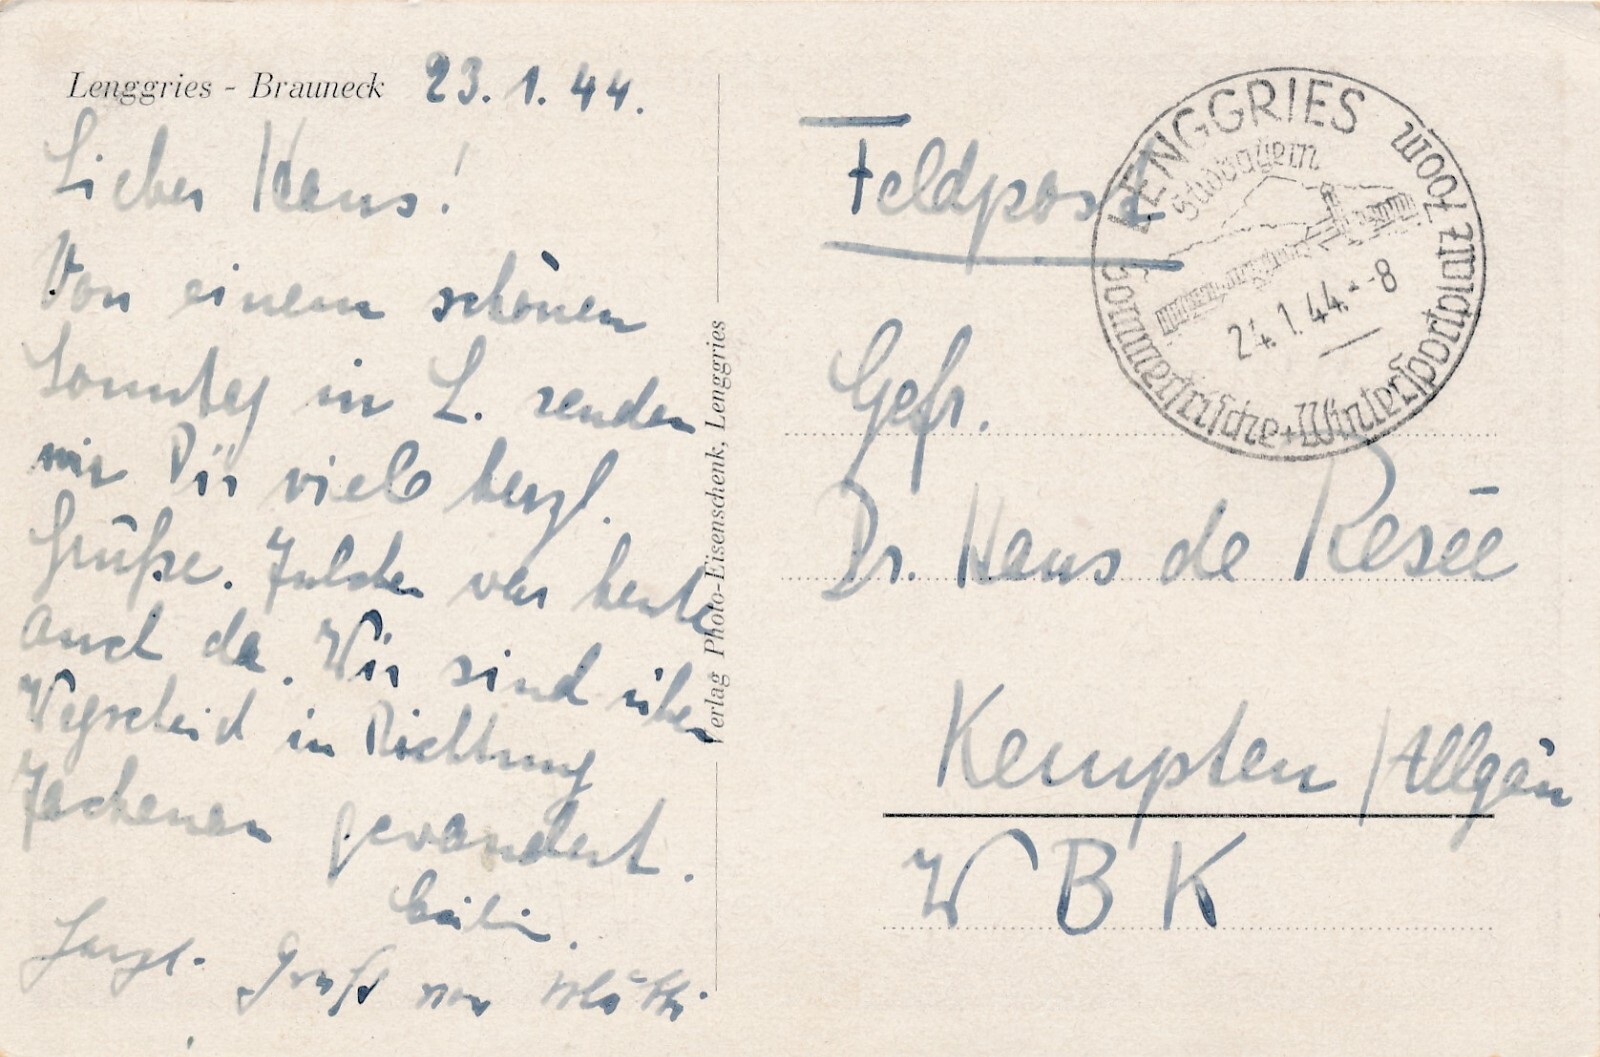 Lenggries - Brauneck 23.1.44.
Lieber Hans!
Von einem schönen
Sonntag in L. senden
wir Dir viele herzl.
Grüße. Julchen war heute
auch da. Wir sind über
Wegscheid in Richtung
Jachenau gewandert.
Herzl. Gruß von Mutti.
Verlag Photo-Eisenschenk, Lenggries
Feldpost
LENGGRIES
Südbayern
700m
Sommerfrische + Wintersportplatz
24.1.44.-8
Gefr.
Dr. Hans de Resée
Kempten /Allgäu
WBK